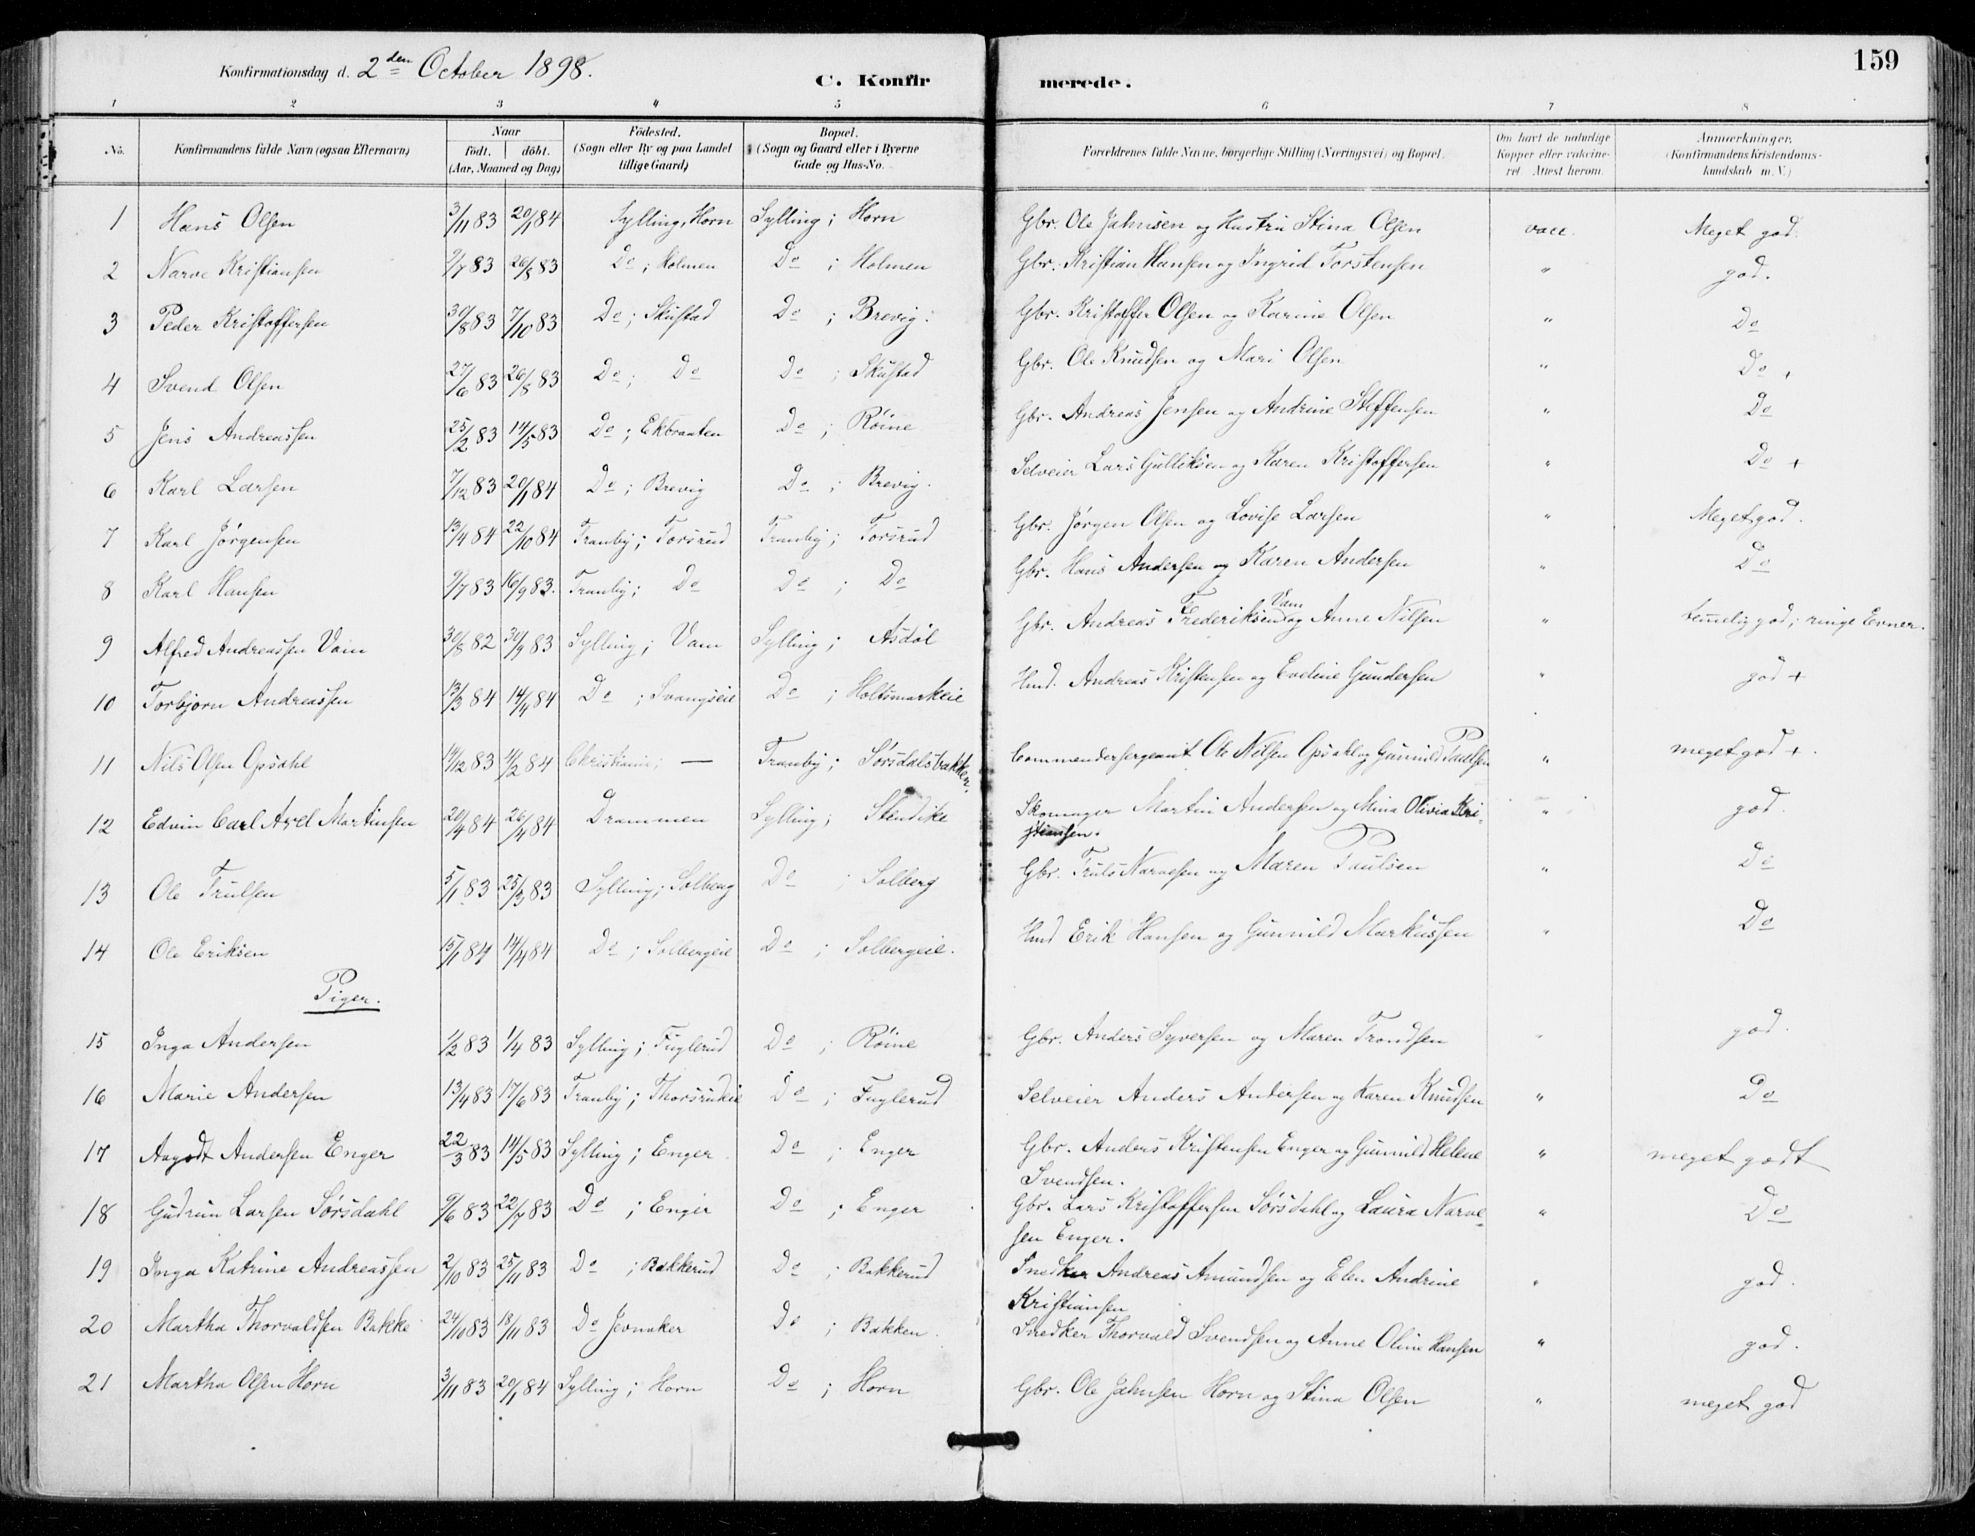 Konfirmationsdag d. 2den October 1898.
C. Konfirmerede.
159
1 2 3 4 5 6 7 8
No. Konfirmandens fulde Navn (ogsaa Efternavn) Naar födt. döbt. (Aar, Maaned og Dag) Födested. (Sogn eller By og paa Landet tillige Gaard) Bopæl. (Sogn og Gaard eller i Byerne Gade og Hus-No. Forældrenes fulde Navne, borgerlige Stilling (Næringsvei) og Bopæl. Om havt de naturlige Kopper eller vakcineret. Attest herom. Anmærkninger. (Konfirmandens Kristendomskundskab m. V.)
1 Hans Olsen 3/11 83 20/1 84 Sylling, Horn Sylling; Horn Gbr. Ole Jahnsen og Hustru Stina Olsen vacc. Meget god.
2 Narve Kristiansen 9/7 83 26/8 83 Do; Holmen Do; Holmen Gbr. Kristian Hansen og Ingrid Torstensen " god.
3 Peder Kristoffersen 30/8 83 7/10 83 Do; Skustad Do; Brevig. Gbr. Kristoffer Olsen og Karine Olsen " Do
4 Svend Olsen 27/6 83 26/8 83 Do; Do Do; Skustad Gbr. Ole Knudsen og Mari Olsen " Do
5 Jens Andreassen 25/2 83 14/5 83 Do; Ekbraaten Do; Röine Gbr. Andreas Jensen og Andrine Steffensen " Do
6 Karl Larsen 7/12 83 20/1 84 Do; Brevig Do; Brevig. Selveier Lars Gulliksen og Karen Kristoffersen " Do +
7 Karl Jörgensen 13/4 84 22/10 84 Tranby; Torsrud Tranby; Torsrud Gbr. Jörgen Olsen og Lovise Larsen " Meget god.
8 Karl Hansen 9/7 83 16/9 83. Tranby; Do Do; Do Gbr. Hans Andersen og Karen Andersen " Do
9 Alfred Andreassen Vam 30/8 82 30/9 83 Sylling; Vam Sylling; Asdöl Gbr. Andreas Frederiksen Vam og Anne Nilsen " temmelig god; ringe Evner.
10 Torbjørn Andreassen 13/3 84 14/4 84 Do; Svangseie Do; Holtsmarkeie Hmd. Andreas Kristensen og Eveline Gundersen " god +
11 Nils Olsen Opsahl 14/12 83 4/2 84 Christiania; — Tranby; Sörsdalsbakken. Commandersergeant Ole Nilsen Opsahl og Gunnild Paulsen " meget god +.
12 Edvin Carl Axel Martinsen 20/4 84 26/4 84 Drammen Sylling; Stendike Skomager Martin Andersen og Mina Olivia Kri-
stiansen. " god.
13 Ole Trulsen 5/1 83 25/3 83 Sylling; Solberg Do; Solberg Gbr. Truls Narvesen og Maren Paulsen " Do
14 Ole Eriksen 15/1 84 14/4 84 Do; Solbergeie Do; Solbergeie. Hmd Erik Hansen og Gunnild Markussen " Do
Piger.
15 Inga Andersen 1/2 83 1/4 83 Sylling; Fuglerud Do; Röine Gbr. Anders Syversen og Maren Trondsen " god.
16 Marie Andersen 13/4 83 17/6 83 Tranby; Thorsrudeie Do; Fuglerud Selveier Anders Andersen og Karen Knudsen " Do
17 Aagodt Andersen Enger 22/3 83 14/5 83 Sylling; Enger Do; Enger Gbr. Anders Kristensen Enger og Gunnild Helene
Svendsen. " meget godt
18 Gudrun Larsen Sörsdahl 9/6 83 22/7 83 Do; Enger Do; Enger Gbr. Lars Kristoffersen Sörsdahl og Laura Narve-
sen Enger. " Do
19 Inga Katrine Andreassen 2/10 83 25/11 83 Do; Bakkerud Do; Bakkerud Snedker Andreas Amundsen og Elen Andrine
Kristiansen " god.
20 Martha Thorvaldsen Bakke 24/10 83 18/11 83 Do Jevnaker Do; Bakken. Snedker Thorvald Svendsen og Anne Oline Hansen " god.
21 Martha Olsen Horn 3/11 83 20/1 84 Sylling; Horn Do; Horn Gbr. Ole Jahnsen Horn og Stina Olsen " meget god